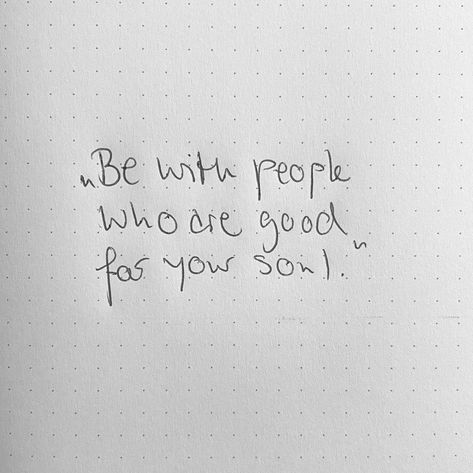 „Be with people
who are good
for your soul."